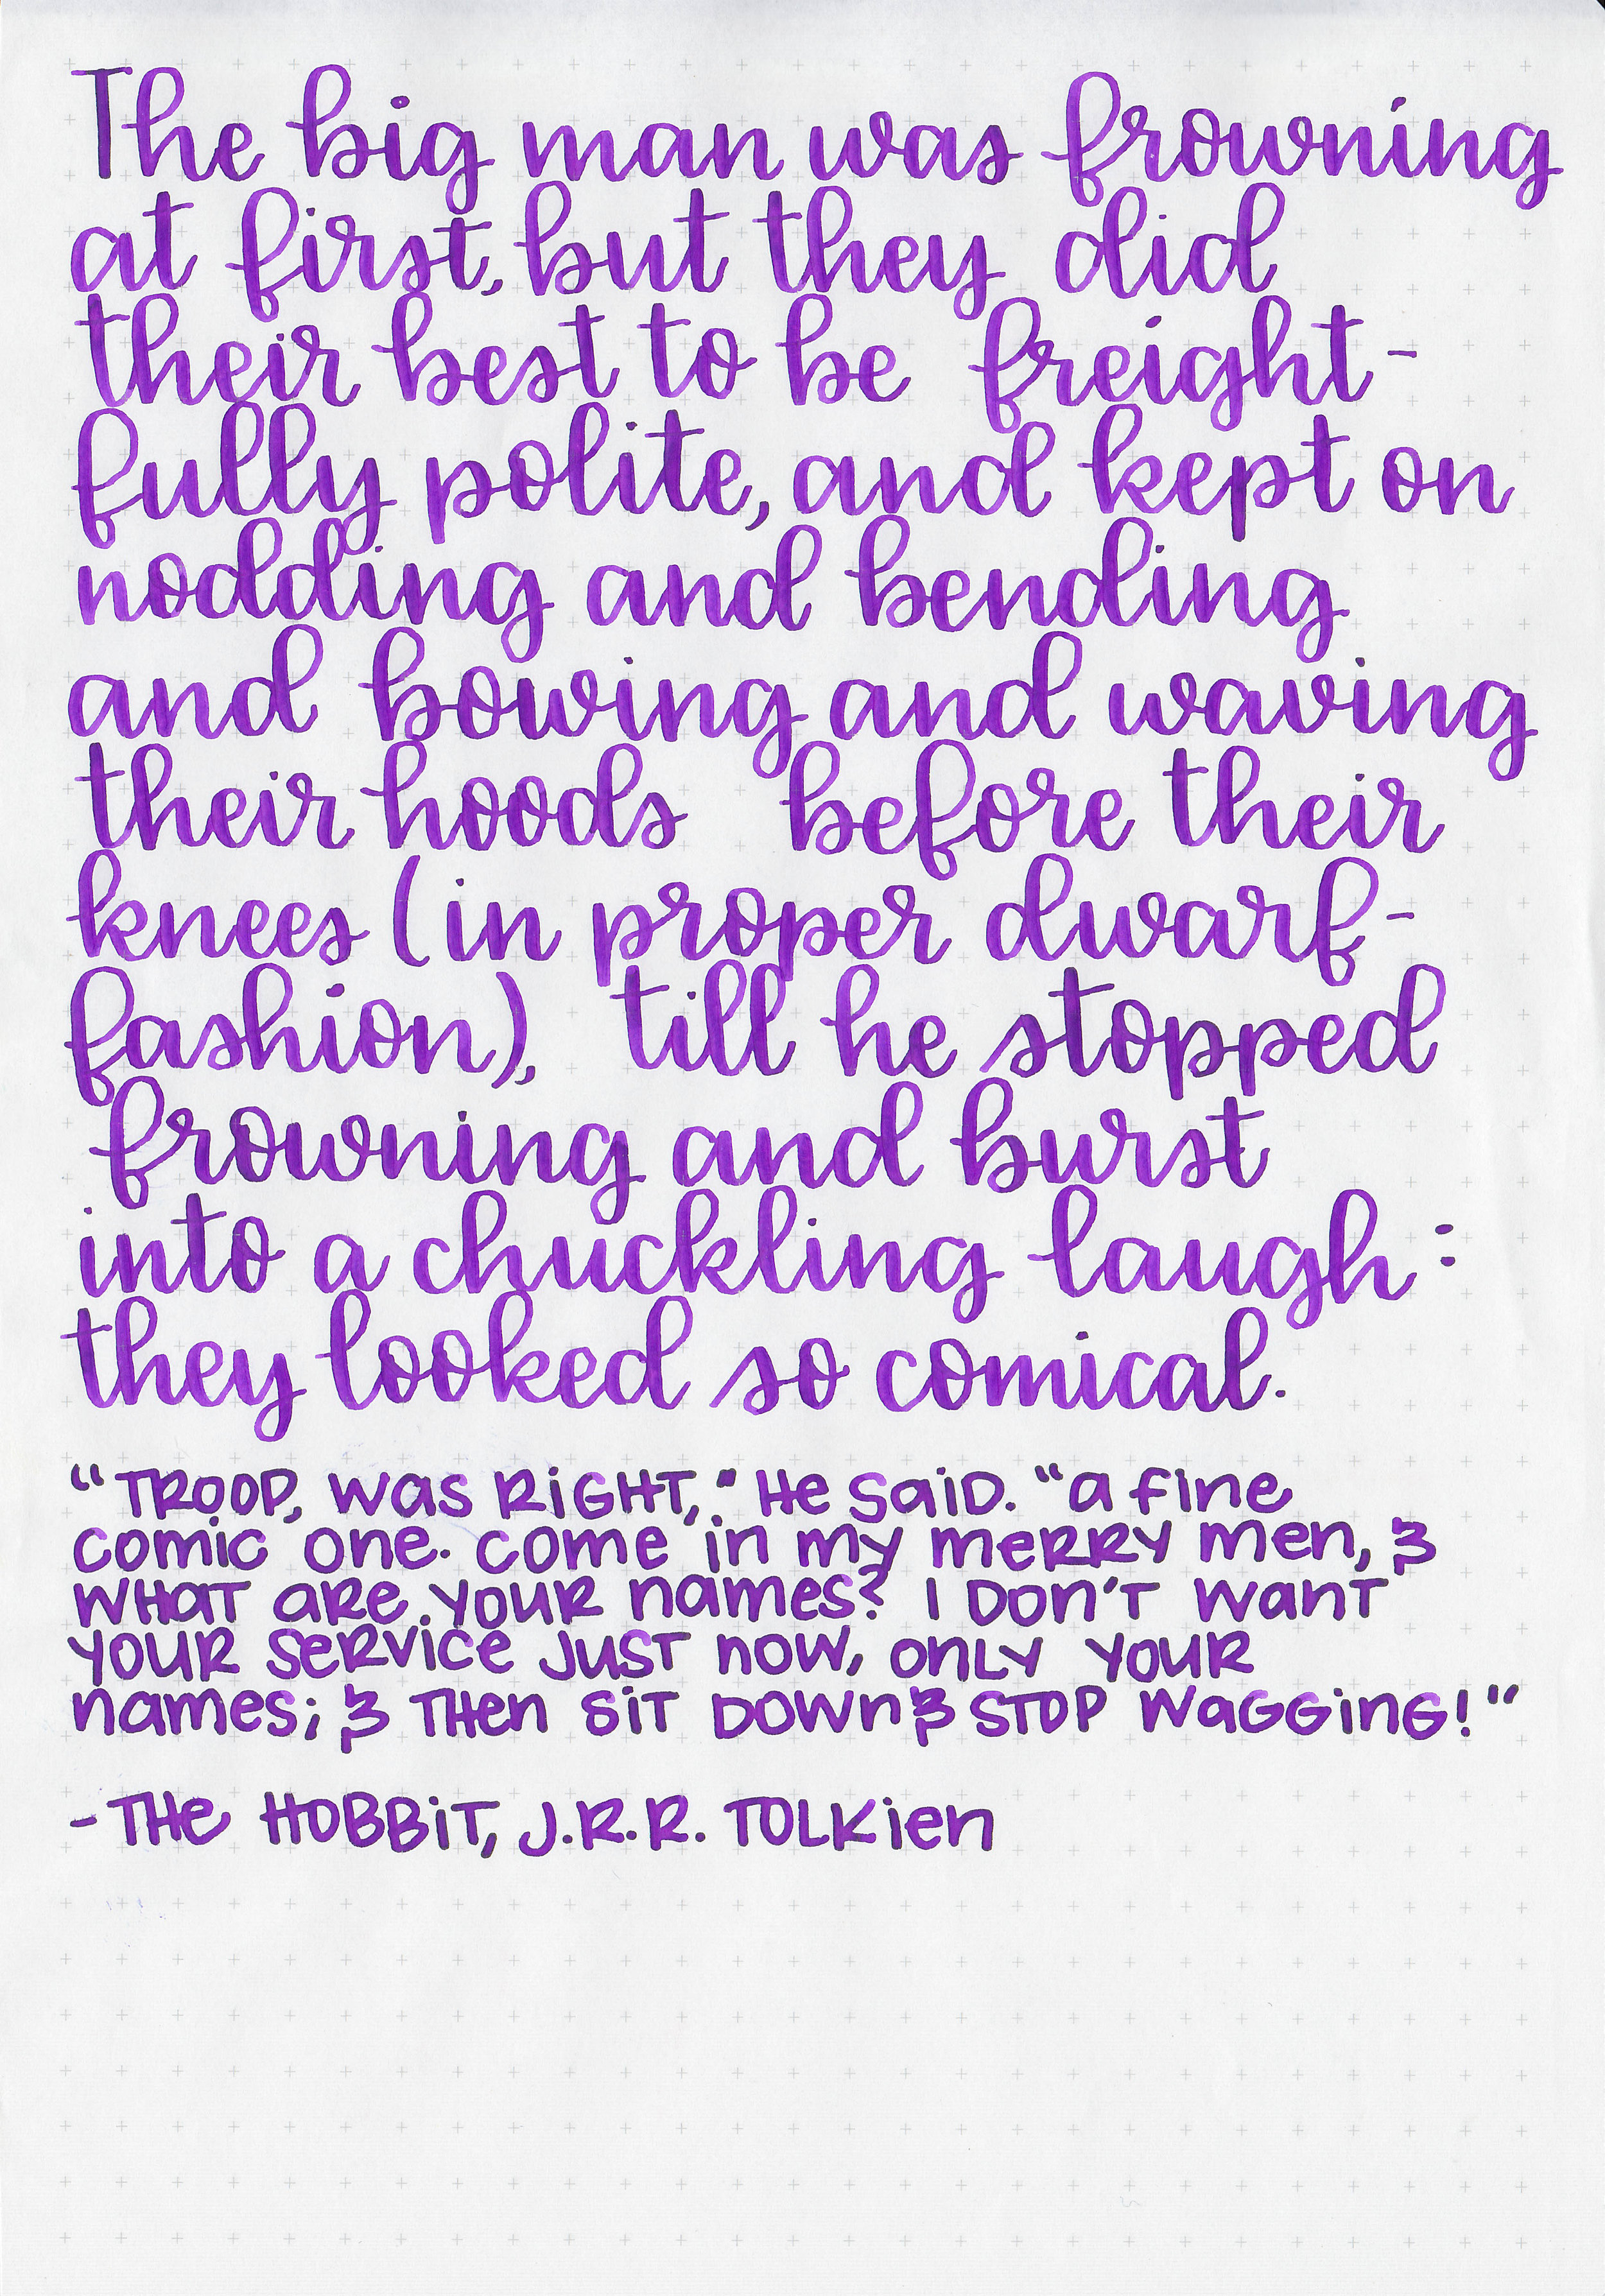 The big man was frowning
at first, but they did
their best to be freight-
fully polite, and kept on
nodding and bending
and bowing and waving
their hoods before their
knees (in proper dwarf-
fashion), till he stopped
frowning and burst
into a chuckling laugh:
they looked so comical.
“TROOP, was RiGHT," He SaiD. “a fine
comic one. come in my meRRy men, &
WHaT aRe youR names? I DOn'T wanT
youR SeRvice JUST now, onLy youR
names; & THen SiT DOWn & STOP WaGGinG!"
- THe HOBBiT, J.R.R. TOLKien